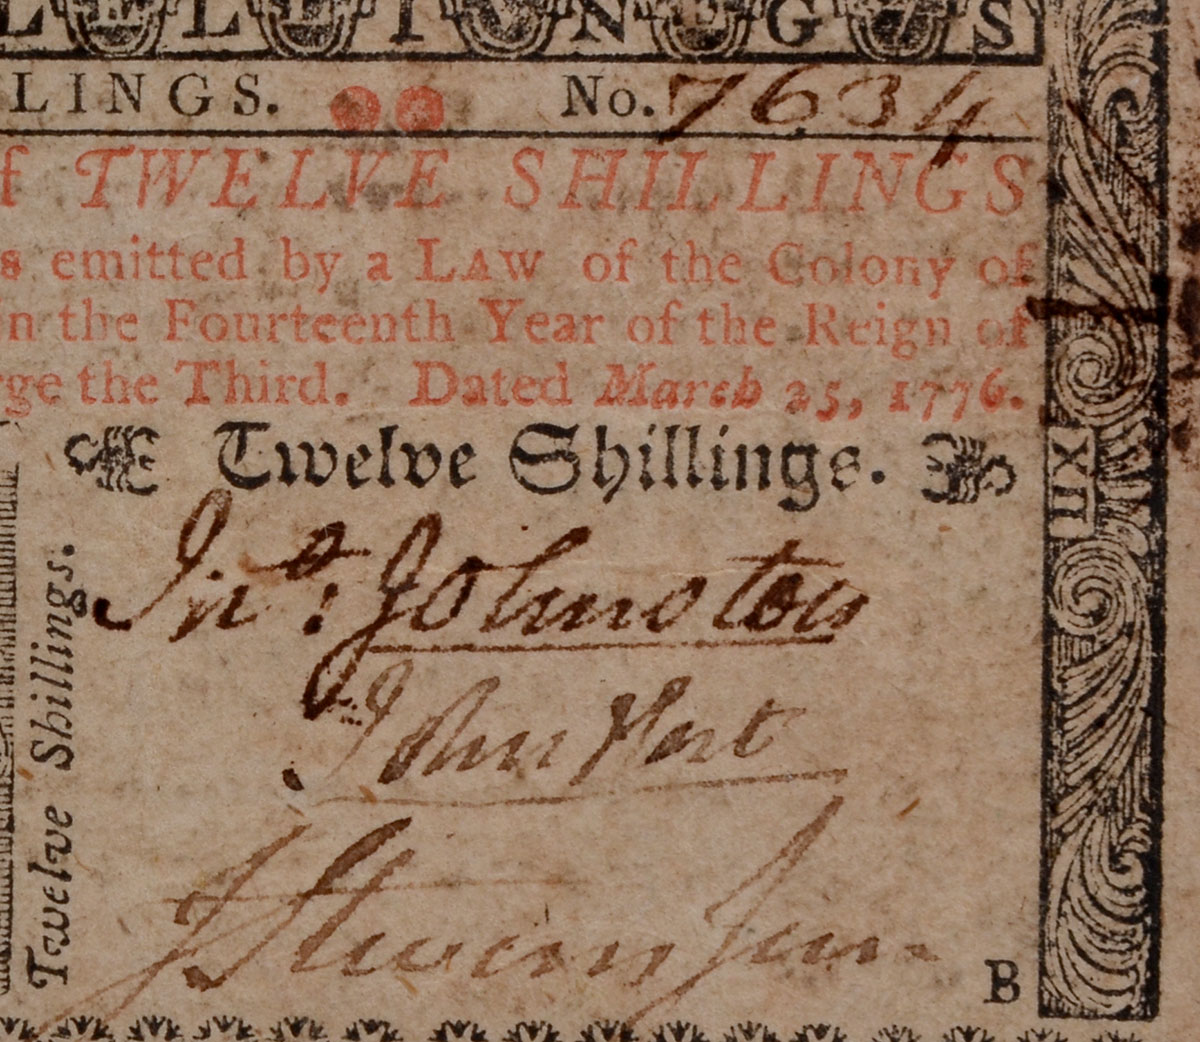 LLINGS
LINGS. No. 7634
f TWELVE SHILLINGS
s emitted by a LAW of the Colony of
n the Fourteenth Year of the Reign of
rge the Third. Dated March 25, 1776.
Twelve Shillings.
XII
Twelve Shillings.
Jno: Johnston
John Hart
J Stevens Jun
B